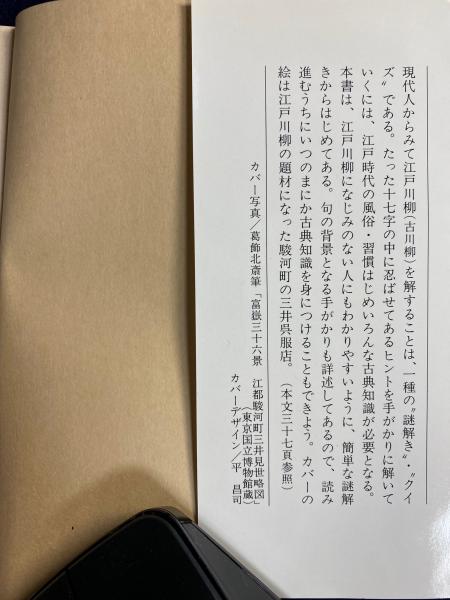 現代人からみて江戸川柳(古川柳)を解することは、一種の〝謎解き〟・〝クイ
ズ〟である。たった十七字の中に忍ばせてあるヒントを手がかりに解いて
いくには、江戸時代の風俗・習慣はじめいろんな古典知識が必要となる。
本書は、江戸川柳になじみのない人にもわかりやすいように、簡単な謎解
きからはじめてある。句の背景となる手がかりも詳述してあるので、読み
進むうちにいつのまにか古典知識を身につけることもできよう。カバーの
絵は江戸川柳の題材になった駿河町の三井呉服店。(本文三十七頁参照)
カバー写真/葛飾北斎筆「富嶽三十六景 江都駿河町三井見世略図」
(東京国立博物館蔵)
カバーデザイン/平 昌司